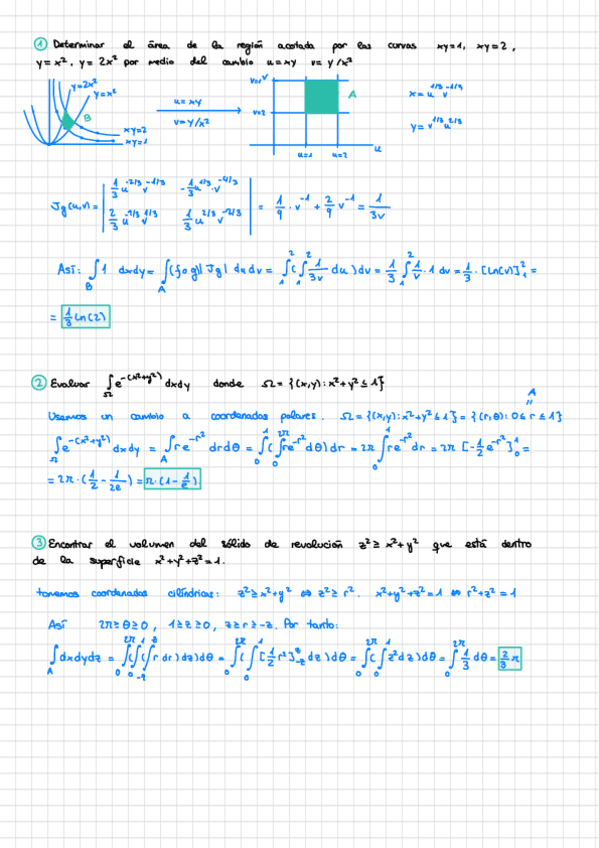 ① Determinar el área de la región acotada por las curvas xy=1, xy=2,
y=x², y=2x² por medio del cambio u=xy v=y/x²
y=2x²
y=x²
B
xy=2
xy=1
u=xy
v=y/x²
v
v=2
A
u=1 u=2
u
x=u^{1/3} v^{-1/3}
y=v^{1/3} u^{2/3}
Jg(u,v)= | 1/3 u^{-2/3} v^{-1/3}   -1/3 u^{1/3} · v^{-4/3} |
| 2/3 u^{-1/3} v^{1/3}   1/3 u^{2/3} v^{-2/3} | = 1/9 · v^{-1} + 2/9 v^{-1} = 1/3v
Así: ∫_B 1 dxdy = ∫_A (f∘g)|Jg| dudv = ∫_1^2 (∫_1^2 1/3v du) dv = 1/3 ∫_1^2 1/v · 1 dv = 1/3 · [Ln(v)]_1^2 =
= 1/3 Ln(2)
② Evaluar ∫_Ω e^{-(x²+y²)} dxdy donde Ω = {(x,y): x²+y² ≤ 1}
A
"
Usamos un cambio a coordenadas polares. Ω = {(x,y): x²+y² ≤ 1} = {(r,θ): 0 ≤ r ≤ 1}
∫_Ω e^{-(x²+y²)} dxdy = ∫_A r e^{-r²} drdθ = ∫_0^1 (∫_0^{2π} r e^{-r²} dθ) dr = 2π ∫_0^1 r e^{-r²} dr = 2π [-1/2 e^{-r²}]_0^1 =
= 2π · (1/2 - 1/2e) = π · (1 - 1/e)
③ Encontrar el volumen del sólido de revolución z² ≥ x²+y² que está dentro
de la superficie x²+y²+z²=1.
tomemos coordenadas cilíndricas: z² ≥ x²+y² ⇔ z² ≥ r². x²+y²+z²=1 ⇔ r²+z²=1
Así 2π ≥ θ ≥ 0, 1 ≥ z ≥ 0, z ≥ r ≥ -z. Por tanto:
∫_A dxdydz = ∫_0^{2π} (∫_0^1 (∫_{-z}^z r dr) dz) dθ = ∫_0^{2π} (∫_0^1 [1/2 r²]_{-z}^z dz) dθ = ∫_0^{2π} (∫_0^1 z² dz) dθ = ∫_0^{2π} 1/3 dθ = 2/3 π